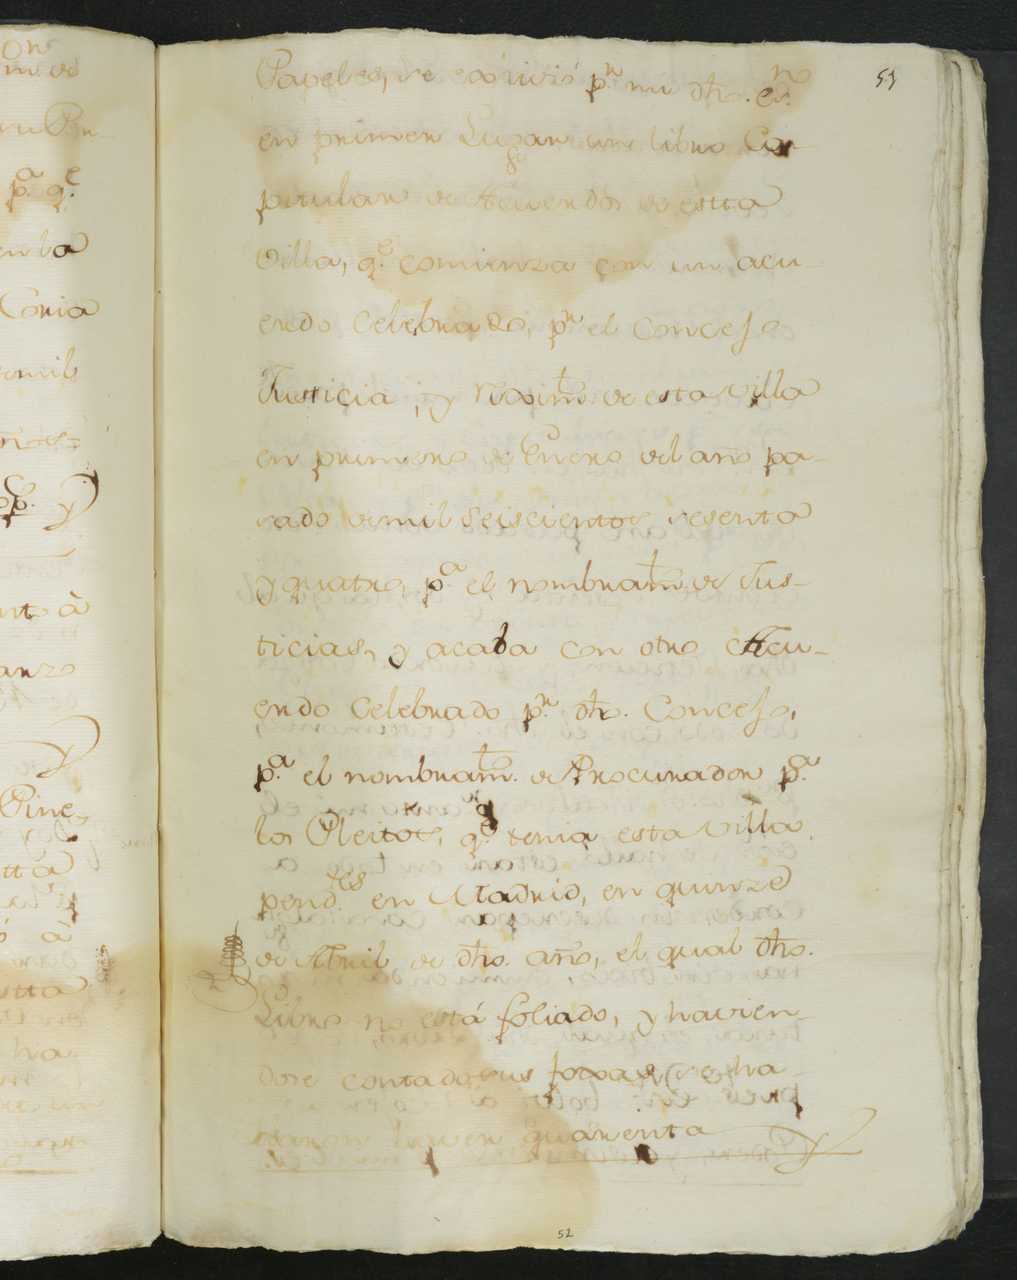 51
Papeles, se exivió p.r mi dho. en
en primer Lugar un libro Ca-
pitular de Acuerdos de estta
Villa, q.e comienza con un acu-
erdo Celebrado, p.r el Concejo
Justticia, y Reximto de esta Villa
en primero de Enero del año pa-
sado de mil Seiscientos sesenta
y quatro, p.a el nombramto de Jus-
ticias, y acaba con otro Acu-
erdo Celebrado p.r dho. Concejo,
p.a el nombramto. de Procurador p.a
los Pleitos, q.e tenia esta Villa
pend.tes en Madrid, en quinze
de Abril de dho. año, el qual dho.
Libro no está foliado, y havien-
dose contado sus foxas, se ha-
llaron quarenta
52